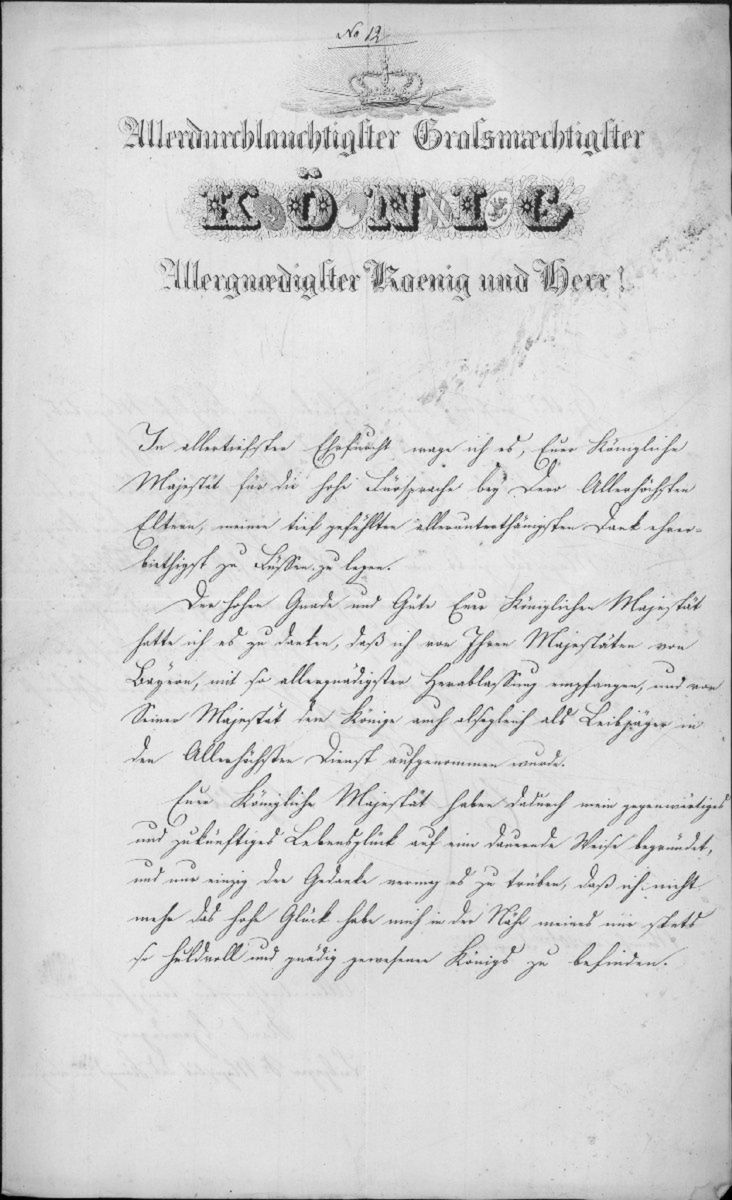 No 12
Allerdurchlauchtigster Grossmæchtigster
KÖNIG
Allergnædigster Koenig und Herr!
In allertiefster Ehrfurcht wage ich es, Eurer Königliche
Majestät für die hohe Fürsprache bey Dero Allerhöchsten
Eltern, meinen tief gefühlten allerunterthänigsten Dank ehrer-
biethigst zu Füssen zu legen.
Der hohen Gnade und Güte Eurer Königlichen Majestät
hatte ich es zu danken, daß ich von Ihren Majestäten von
Bayern, mit so allergnädigster Herablassung empfangen, und von
Seiner Majestät dem Könige auch alsogleich als Leibjäger in
den Allerhöchsten Dienst aufgenommen wurde.
Eure Königliche Majestät haben dadurch mein gegenwärtiges
und zukünftiges Lebensglück auf eine dauernde Weise begründet,
und nur einzig der Gedanke vermag es zu trüben, daß ich nicht
mehr das hohe Glück habe mich in der Nähe meines mir stets
so huldvoll und gnädig gewesenen Königs zu befinden.